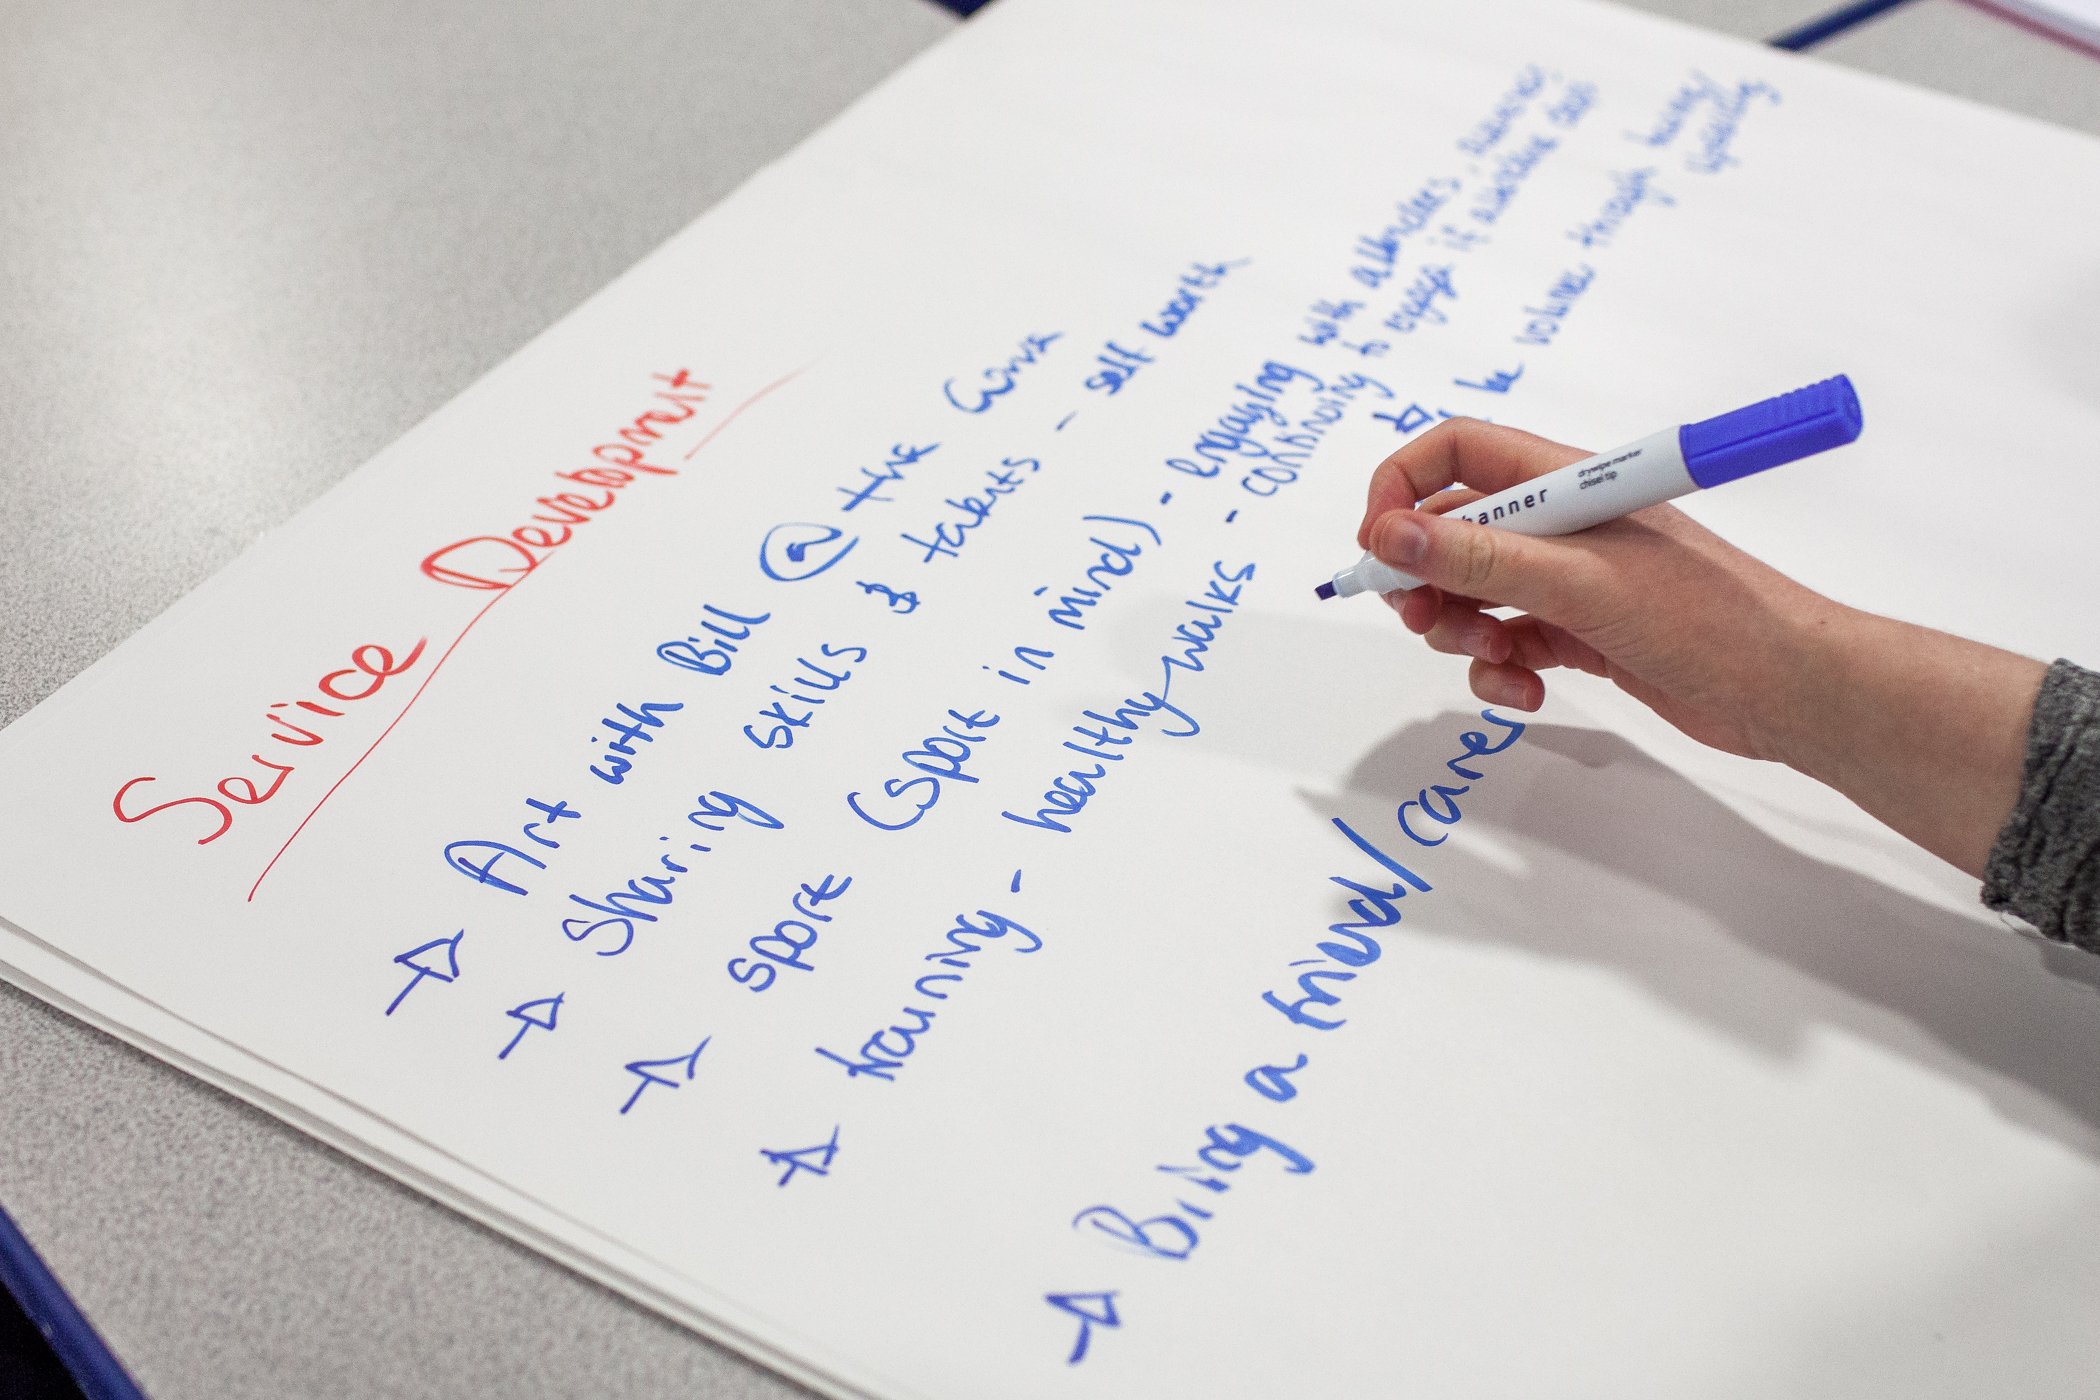 Service Development
Art with Bill @ the
Sharing skills & talents - self worth
sport (sport in mind) - engaging with
training - healthy walks - continuing to engage if
be through
Being a friend/carer
banner
drywipe marker
chisel tip